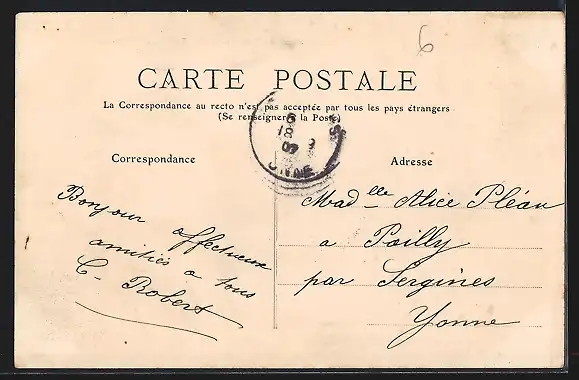 6
CARTE POSTALE
La Correspondance au recto n'est pas acceptée par tous les pays étrangers
(Se renseigner à la Poste)
Correspondance
Adresse
Bonjour affectueux
amitiés a tous
C. Robert
Mad<sup>elle</sup> Alice Pléau
a Poilly
par Sergines
Yonne